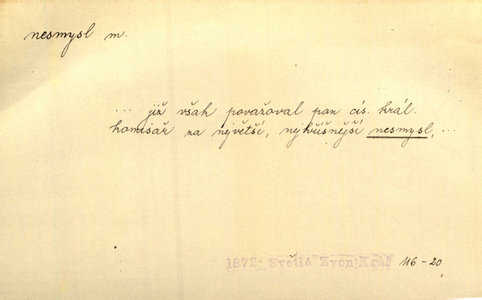 nesmysl m.
... již však považoval pan cís. král.
komisař za největší, nejhříšnější nesmysl, ...
1872 Světlá Zvon.Král 116-20